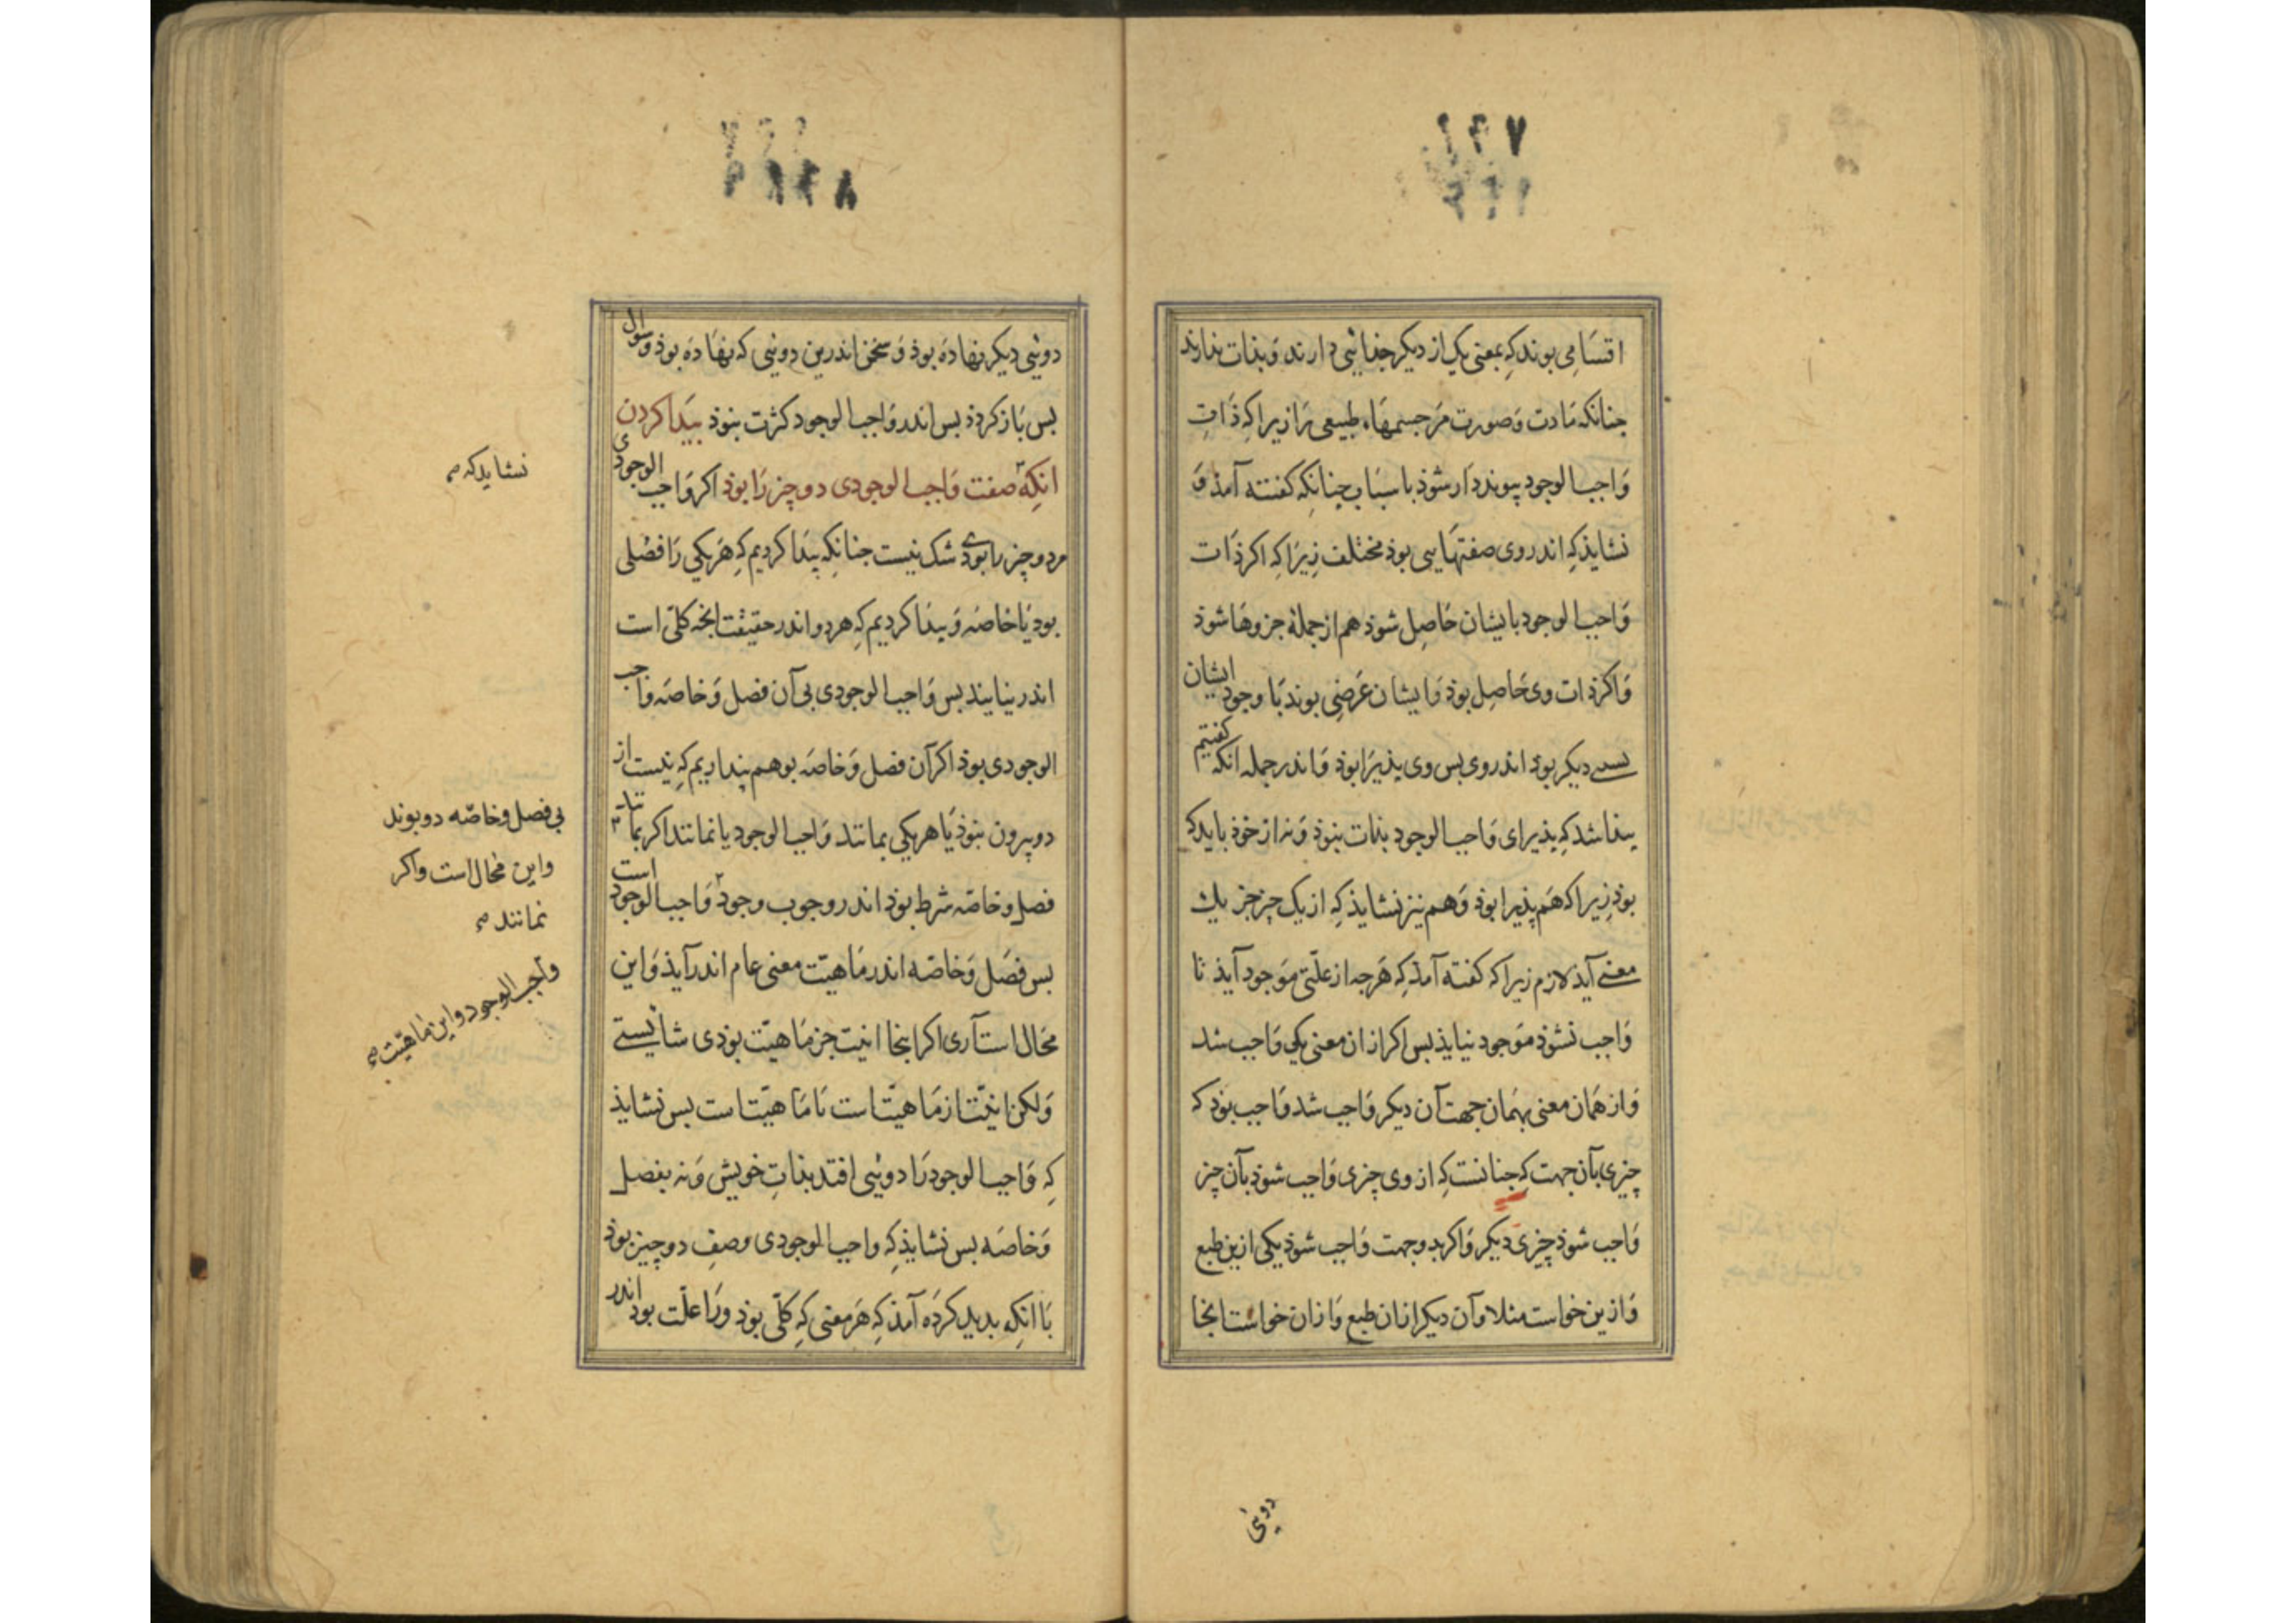 ۷۶۲
اقسامی بوند که بمعنی یک از دیگر جذائیی دارند و بذات ندارند
جنانکه مادت و صورت مر جسمهاء طبیعی را زیرا که ذات
واجب الوجود پیونددار شوذ باسباب جنانکه کفته آمذ و
نشایذ که اندر وی صفتهایی بوذ مختلف زیرا که اکر ذات
واجب الوجود بایشان حاصل شوذ هم از جملهٔ جزوها شوذ
و اکر ذات وی حاصل بوذ و ایشان عرضی بوند با وجود ایشان
بسی دیکر بوذ اندر وی بس وی پذیرا بوذ و اندر جمله انکه کفتیم
بیذا شد که بذیرای واجب الوجود بذات نبوذ و نه از خوذ بایدکه
بوذ زیرا که هم پذیرا بوذ و هم نیز نشایذ که از یک چیز جز یک
معنی آیذ لازم زیرا که کفته آمذ که هرجه از علتی موجود آیذ تا
واجب نشوذ موجود نیایذ بس اکر از ان معنی یکی واجب شد
و از همان معنی بهمان جهت آن دیکر واجب شد واجب بوذ که
چیزی بآن جهت که جنانست که از وی چیزی واجب شوذ بآن چیز
واجب شوذ چیزی دیکر و اکر بدو جهت واجب شوذ یکی ازین طبع
و ازین خواست مثلا و آن دیکر از ان طبع و از ان خواست اینجا
دوئیی
دوئیی دیکر نهاده بوذ و سخن اندرین دوئیی که نهاده بوذ و سوال
بس باز کردذ بس اندر واجب الوجود کثرت نبوذ بیدا کردن
انکه صفت واجب الوجودی دو چیز را بوذ اکر واجب الوجودی
نشاید که صح
مر دو چیز را بوذی شک نیست جنانکه پیدا کردیم که هر یکی را فصلی
بوذ یا خاصه و بیدا کردیم که هر دو اندر حقیقت انچه کلی است
اندر نیایند بس واجب الوجودی بی آن فصل و خاصه واجب
الوجودی بوذ اکر آن فصل و خاصه بوهم پنداریم که نیست از
دو بیرون نبوذ یا هر یکی بمانند واجب الوجود یا نمانند اکر بمانند
بی فصل و خاصه دو بوند
و این محال است و اکر
نمانند صح
فصل و خاصه شرط بوذ اندر وجوب وجود و واجب الوجود است
واجب الوجود و این ماهیت صح
بس فصل و خاصه اندر ماهیت معنی عام اندر آیذ و این
محال است آری اکر اینجا انیت جز ماهیت بوذی شایستی
و لکن انیت از ماهیت است یا ماهیت است بس نشایذ
که واجب الوجود را دوئیی افتد بذات خویش و نه بفصل
و خاصه بس نشایذ که واجب الوجودی وصف دو چیز بوذ
با انکه بدید کرده آمذ که هر معنی که کلی بوذ ورا علت بوذ اندر